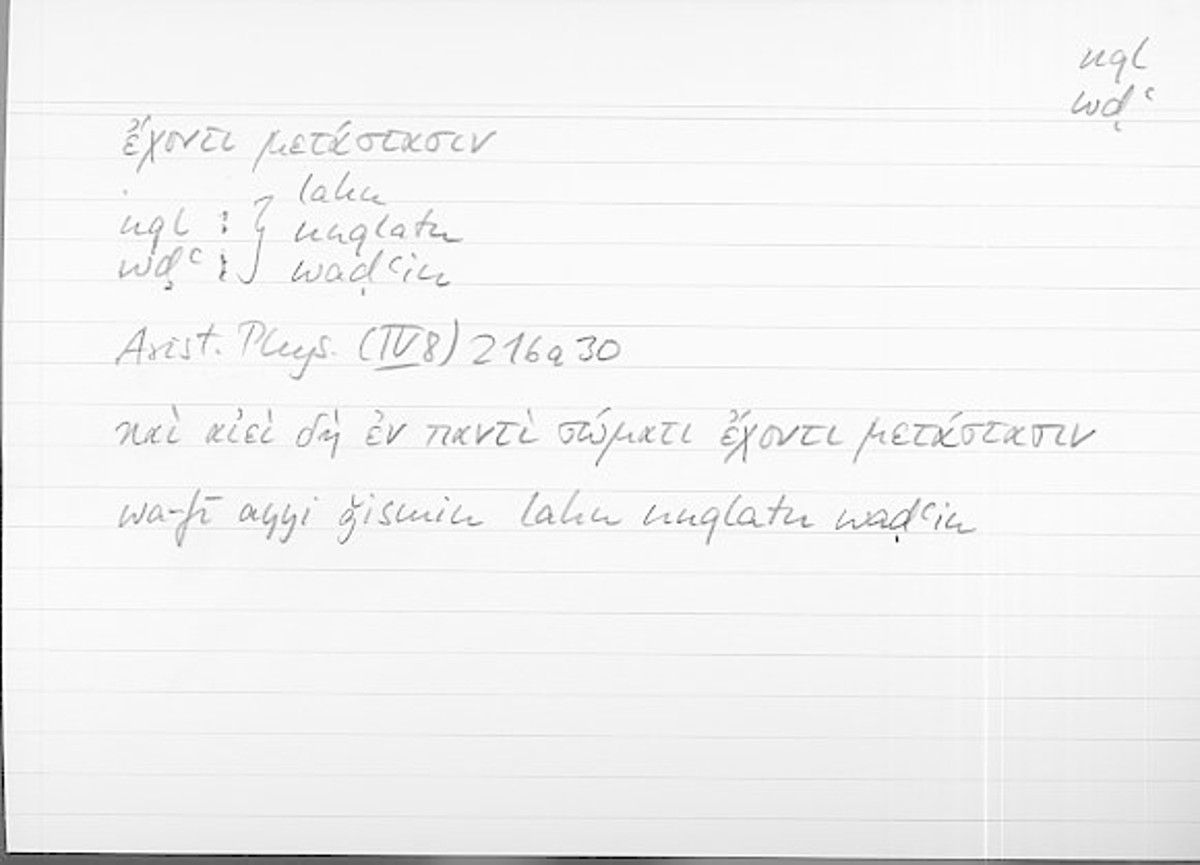 nql
wḍʿ
ἔχοντι μετάστασιν
lahu
nql : nuqlatu
wḍʿ : waḍʿin
Arist. Phys. (IV 8) 216a30
καὶ αἰεὶ δὴ ἐν παντὶ σώματι ἔχοντι μετάστασιν
wa-fī ayyi ǧismin lahu nuqlatu waḍʿin